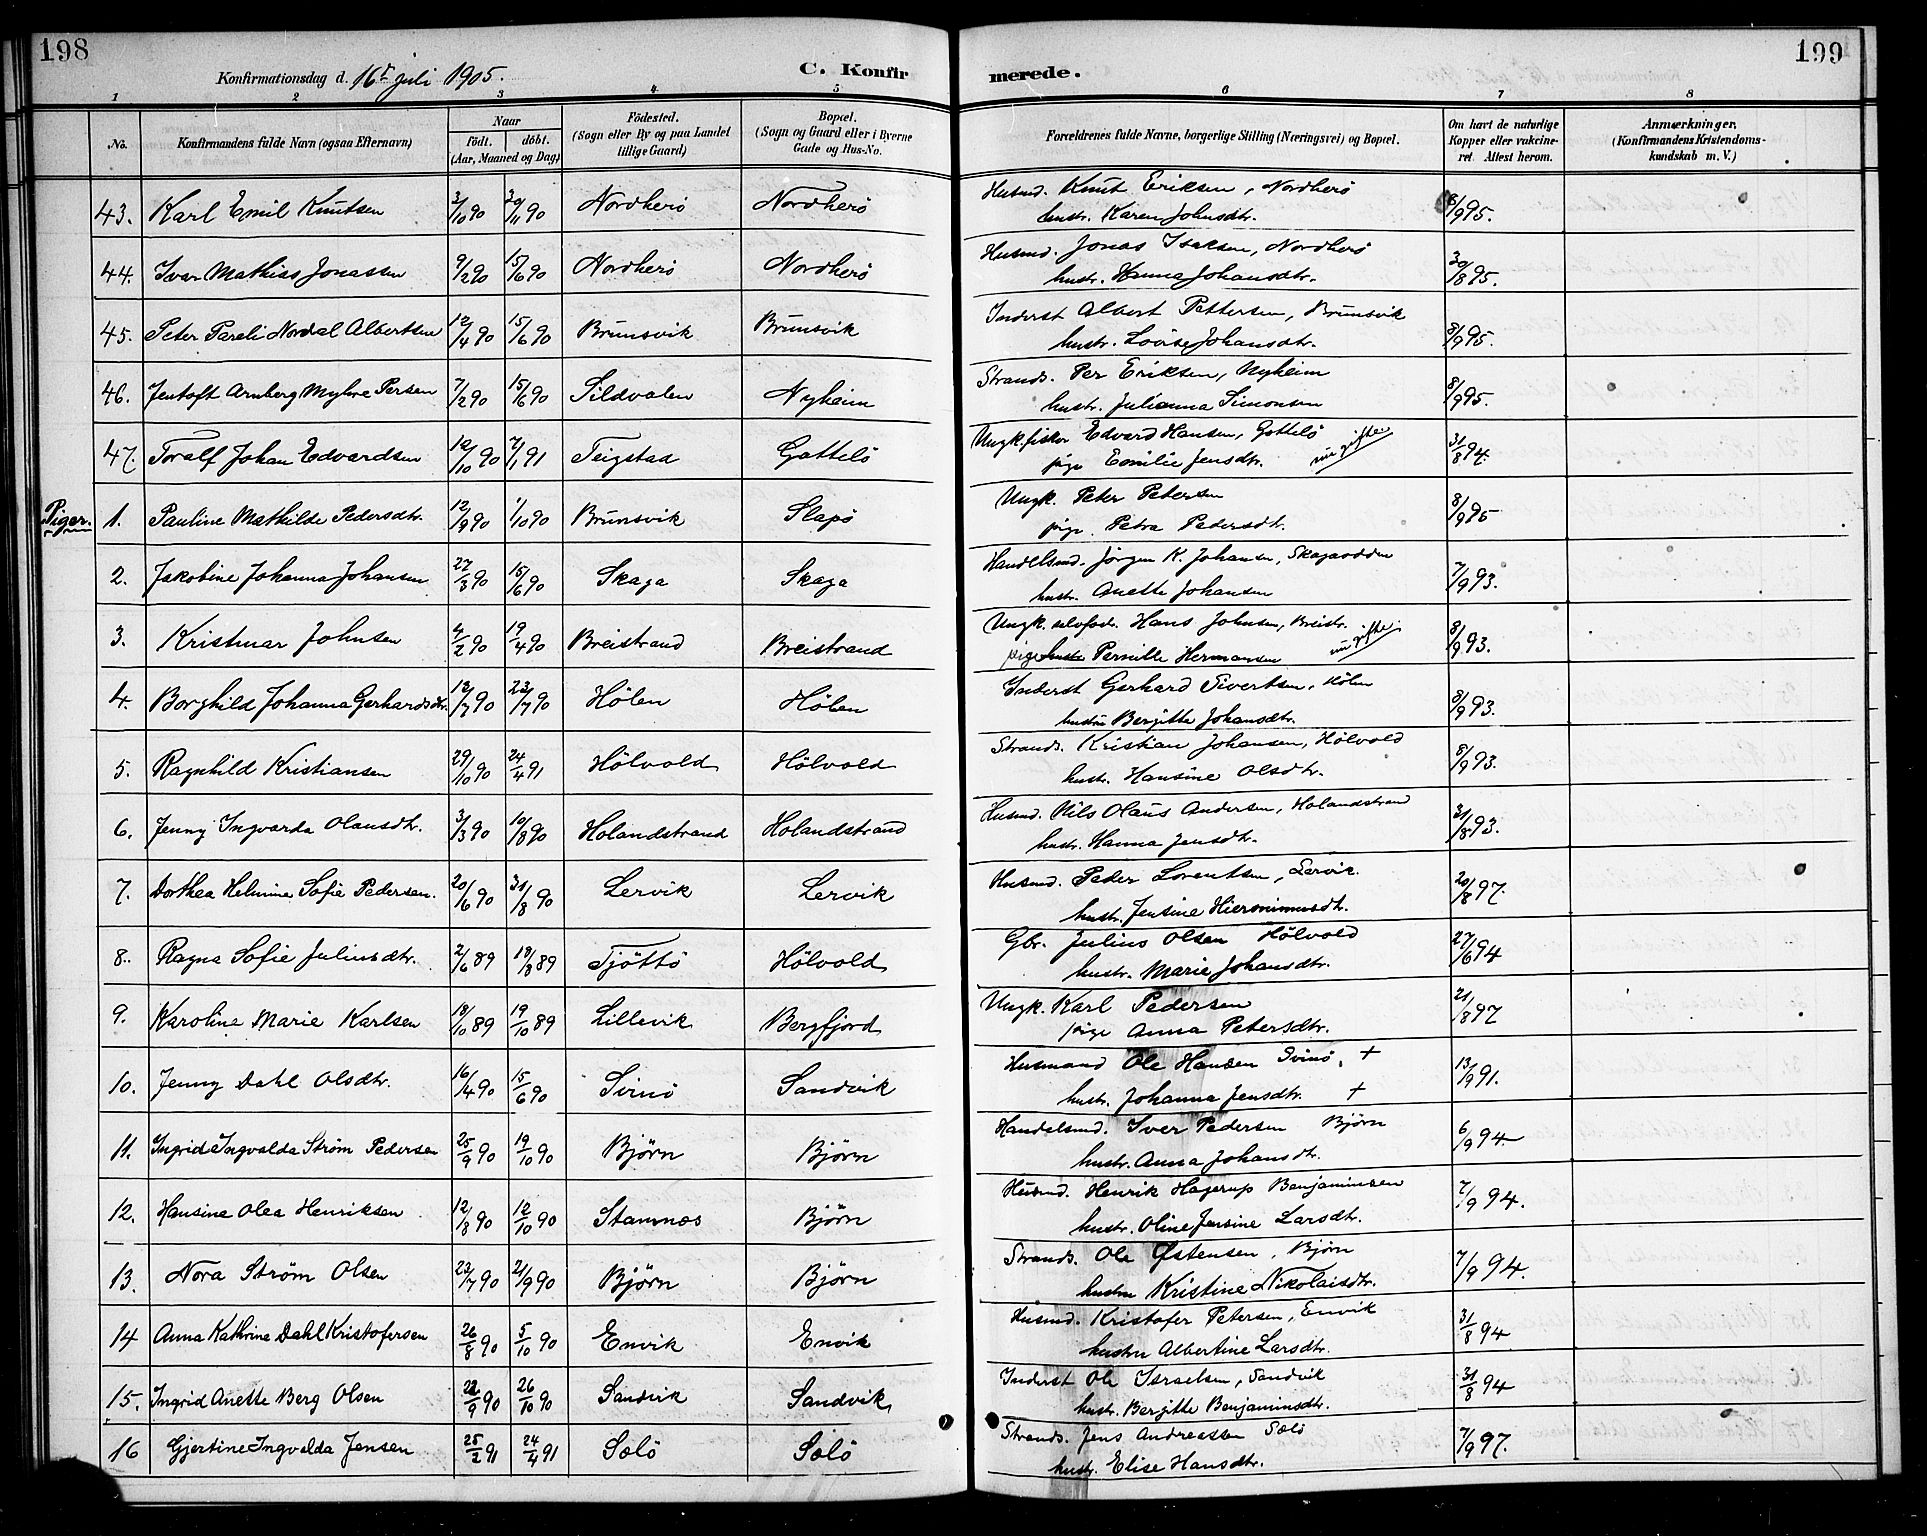 198
199
Konfirmationsdag d. 16t juli 1905.
C. Konfir
merede.
1 2 3 4 5 6 7 8
No.
Konfirmandens fulde Navn (ogsaa Efternavn)
Naar
født. døbt.
(Aar, Maaned og Dag)
Fødested.
(Sogn eller By og paa Landet
tillige Gaard)
Bopæl.
(Sogn og Gaard eller i Byerne
Gade og Hus-No.
Forældrenes fulde Navne, borgerlige Stilling (Næringsvei) og Bopæl.
Om havt de naturlige
Kopper eller vakcine-
ret. Attest herom.
Anmærkninger.
(Konfirmandens Kristendoms-
kundskab m. V.)
43. Karl Emil Knutsen 3/10 90 30/11 90 Nordherö Nordherö Husmd. Knut Eriksen, Nordherö 8/9 95.
hustr. Karen Johnsdtr.
44. Ivar Mathias Jonassen 9/2 90 15/6 90 Nordherö Nordherö Husmd. Jonas Isaksen, Nordherö 30/8 95.
hustr. Hanna Johansdtr.
45. Peter Pareli Nordal Albertsen 12/4 90 15/6 90 Brunsvik Brunsvik Inderst Albert Pettersen, Brunsvik 8/9 95.
hustr. Lovise Johansdtr.
46. Jentoft Arnberg Myhre Persen 7/2 90 15/6 90 Sildvalen Nyheim Strands. Per Eriksen, Nyheim 8/9 95.
hustr. Julianna Simonsen
47. Toralf Johan Edvardsen 12/10 90 7/1 91 Teigstad Gottelö Ungk. fisker Edvard Hansen, Gottelö 31/8 94.
pige Emilie Jensdtr. nu gifte
Piger.
1. Pauline Mathilde Pedersdtr. 12/9 90 1/10 90 Brunsvik Slapö Ungk. Peter Petersen 8/9 95
pige. Petra Pedersdt.
2. Jakobine Johanna Johansen 27/3 90 15/6 90 Skaga Skaga Handelsmd. Jörgen K. Johansen, Skagaodden 7/9 93.
hustr. Anette Johansen
3. Kristmar Johnsen 4/2 90 19/4 90 Breistrand Breistrand Ungk. selvfod. Hans Johnsen, Breistr. 8/9 93.
pige hustr Pernille Hermansen nu gifte
4. Borghild Johanna Gerhardsdtr. 12/7 90 23/7 90 Hölen Hölen Inderst Gerhard Sivertsen, Hölen 8/9 93.
hustru Bergitte Johansdtr.
5. Ragnhild Kristiansen 29/10 90 24/4 91 Hölvold Hölvold Strands. Kristian Johansen, Hölvold 8/9 93.
hustr. Hansine Olsdtr.
6. Jenny Ingvarda Olausdtr. 3/3 90 10/8 90 Holandstrand Holandstrand Husmd. Nils Olaus Andersen, Holandstrand 31/8 93.
hustr. Hanna Jensdtr.
7. Dorthea Helmine Sofie Pedersen. 20/6 90 31/8 90 Lervik Lervik Husmd. Peder Lorentsen, Lervik. 20/8 97.
hustr. Jensine Hieronimusdt.
8. Ragna Sofie Juliusdtr. 2/6 89 18/8 89 Tjöttö Hölvold Gbr. Julius Olsen Hölvold 27/6 94
hustr. Marie Johansdtr.
9. Karoline Marie Karlsen 18/10 89 19/10 89 Lillevik Bergfjord Ungk. Karl Pedersen 21/8 97
pige Anna Petersdtr.
10. Jenny Dahl Olsdtr. 16/4 90 15/6 90 Svinö Sandvik Husmand Ole Hansen Svinö, + 13/9 91.
hustr. Johanna Jensdtr. +
11. Ingrid Ingvalda Strøm Pedersen 25/9 90 19/10 90 Bjørn Bjørn Handelsmd. Iver Pedersen Bjørn 6/9 94
hustr. Anna Johansdtr.
12. Hansine Olea Henriksen 12/8 90 12/10 90 Stamnes Bjørn Husmd. Henrik Hagerup Benjaminsen 7/9 94.
hustr. Oline Jensine Larsdtr.
13. Nora Strøm Olsen 23/7 90 21/9 90 Bjørn Bjørn Strands. Ole Østensen, Bjørn 7/9 94.
hustru Kristine Nikolaisdtr.
14 Anna Kathrine Dahl Kristofersen 26/8 90 5/10 90 Envik Envik Husmd. Kristofer Petersen, Envik 31/8 94
hustru Albertine Larsdtr.
15. Ingrid Anette Berg Olsen 22/9 90 26/10 90 Sandvik Sandvik Inderst Ole Israelsen, Sandvik 31/8 94
hustr. Bergitte Benjaminsdtr.
16 Gjertine Ingvalda Jensen 25/2 91 24/4 91 Solö Solö Strands. Jens Andreassen Solö 7/9 97.
hustr. Elise Hansdtr.